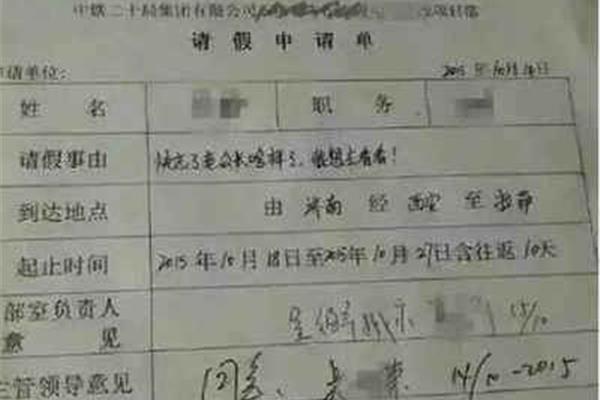 中铁二十局集团有限公司
请假申请单
申请单位: 2015年10月14日
姓名 职务
请假事由 快忘了老公长啥样了、很想去看看!
到达地点 由 济南 经 西安 至
起止时间 2015年10月18日至2015年10月27日含往返10天
部室负责人意见 呈 15/10
主管领导意见 同意、 14/10-2015